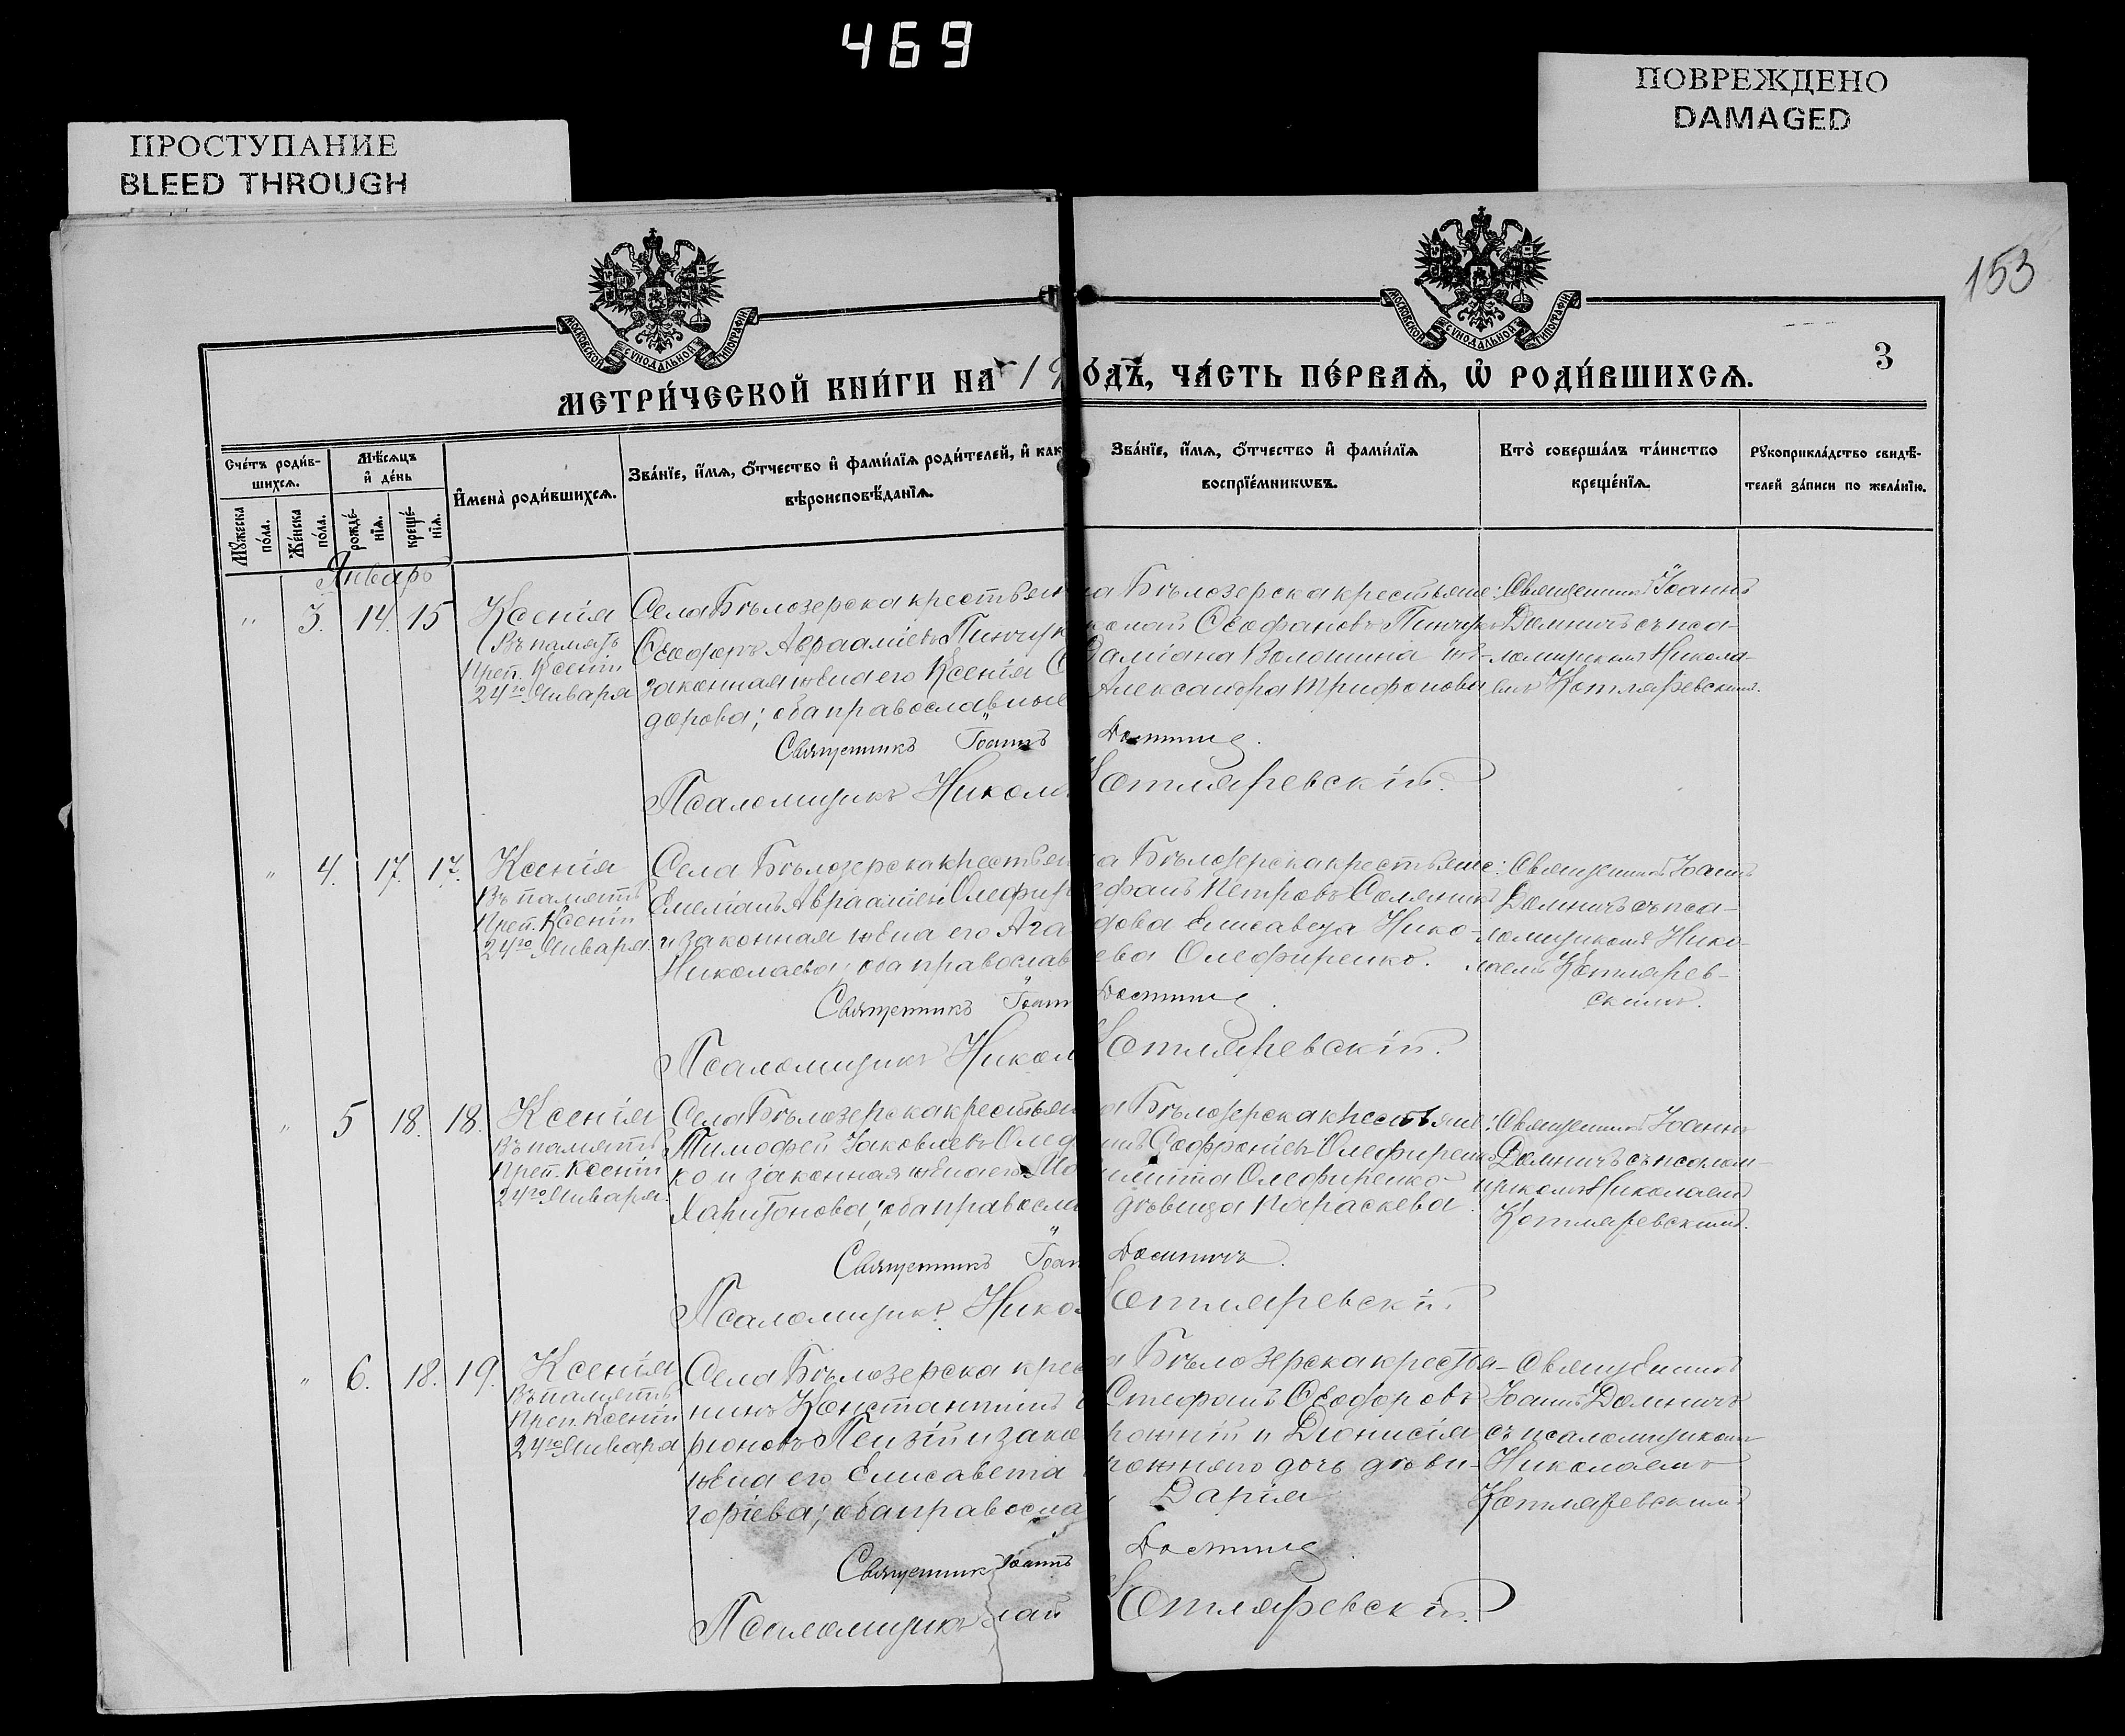 469
ПРОСТУПАНИЕ
BLEED THROUGH
ПОВРЕЖДЕНО
DAMAGED
153
МОСКОВСКОЙ СѴНОДАЛЬНОЙ ТИПОГРАФІИ
МОСКОВСКОЙ СѴНОДАЛЬНОЙ ТИПОГРАФІИ
3
МЕТРИ́ЧЕСКОЙ КНИ́ГИ НА 19
О́ДЪ, ЧА́СТЬ ПЕ́РВАѦ, Ѽ РОДИ́ВШИХСѦ.
Сче́тъ роди́в-
шихсѧ.
Мѣ́сѧцъ
и҆ де́нь
Мꙋ́жеска
по́ла.
Же́нска
по́ла.
рожде́-
нїѧ.
креще́-
нїѧ.
И҆мена̀ роди́вшихсѧ.
Зва́нїе, и҆́мѧ, ѻ҆́тчество и҆ фами́лїѧ роди́телей, и҆ как
вѣроисповѣ́данїѧ.
Зва́нїе, и҆́мѧ, ѻ҆́тчество и҆ фами́лїѧ
воспрїе́мникѡвъ.
Кто̀ соверша́лъ та́инство
креще́нїѧ.
Рꙋкоприкла́дство свидѣ́-
телей за́писи по жела́нїю.
Январь
" 3. 14. 15 Ксенія
Въ память
Преп. Ксеніи
24го Января
Села Бѣлозерска крестьян
Ѳеодоръ Авраамiевъ Пинчук
законная жена его Ксенія Ѳ
дорова; оба православные
а Бѣлозерска крестьяне:
колай Ѳеофановъ Пинчукъ
Даміана Волошина же-
Александра Трифонова
Священникъ Іоаннъ
Доминичъ съ пса-
ломщикомъ Никола-
емъ Котляревскимъ.
Священникъ Іоаннъ Доминич.
Псаломщикъ Никола Котляревскій.
" 4. 17. 17. Ксенія
Въ память
Преп. Ксеніи
24го Января.
Села Бѣлозерска крестьян
Емеліанъ Авраамiевъ Олефир
и законная жена его Ага
Николаева; оба православ
а Бѣлозерска крестьяне:
ефанъ Петровъ Соляникъ
дова Елисавета Нико-
ева Олефиренко.
Священникъ Іоаннъ
Доминичъ съ пса-
ломщикомъ Нико-
лаемъ Котлярев-
скимъ.
Священникъ Іоанн Доминич.
Псаломщикъ Никол Котляревскій.
" 5 18. 18. Ксенія
Въ память
Преп. Ксеніи
24го Января.
Села Бѣлозерска крестьян
Тимофей Іаковлевъ Олеф
ко и законная жена его Ма
Харитонова; оба правосла
а Бѣлозерска крестьяне:
Софроніевъ Олефиренко
Олефиренко
дѣвица Параскева.
Священникъ Іоаннъ
Доминичъ съ псалом-
щикомъ Николаемъ
Котляревскимъ.
Священникъ Іоан Доминичъ.
Псаломщикъ Нико Котляревскій.
" 6. 18. 19. Ксенія
Въ память
Преп. Ксеніи
24го Января
Села Бѣлозерска крес
нинъ Константинъ
ріоновъ и зако
жена его Елисавета
горіева; оба правосла
а Бѣлозерска крестья-
Стефанъ Ѳеодоровъ
рожній и Діонисія
рожняго дочь дѣви-
Дарія
Священникъ
Іоаннъ Доминичъ
съ псаломщикомъ
Николаемъ
Котляревскимъ
Священник Іоаннъ Доминич.
Псаломщикъ лай Котляревскій.